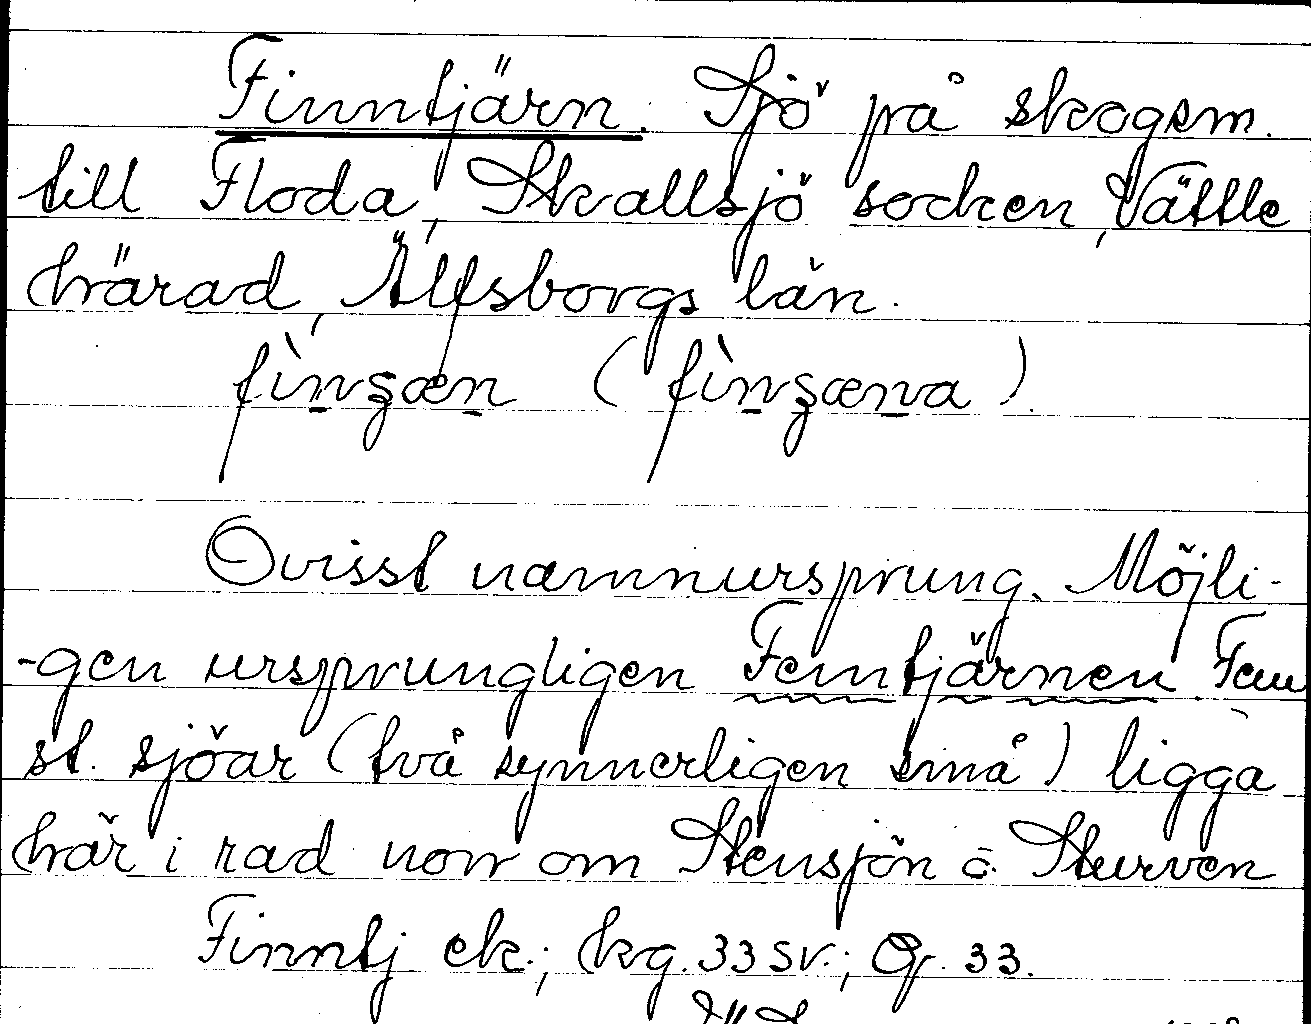 Finntjärn. Sjö på skogsm.
till Floda, Skallsjö socken, Vättle
härad, Älfsborgs län.
Ovisst namnursprung. Möjli-
-gen ursprungligen Femtjärnen. Fem
st. sjöar (två synnerligen små) ligga
här i rad norr om Stensjön o. Sturven
Finntj ek.; kg. 33 SV.; Gr. 33.